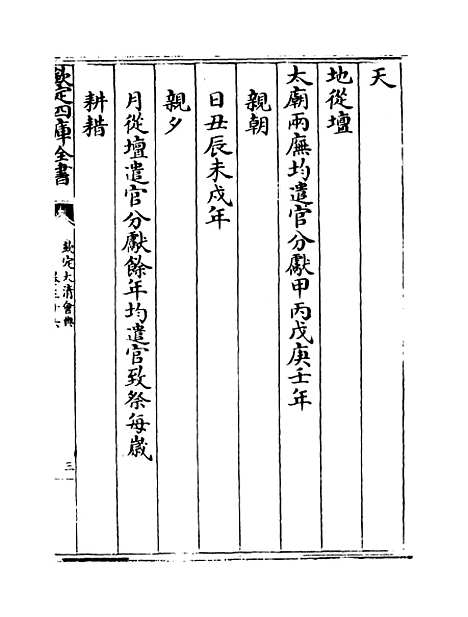 天
地從壇
太廟兩廡均遣官分獻甲丙戊庚壬年
親朝
日丑辰未戌年
親夕
月從壇遣官分獻餘年均遣官致祭每嵗
耕耤
欽定四庫全書
欽定大清會典
卷三十六
三